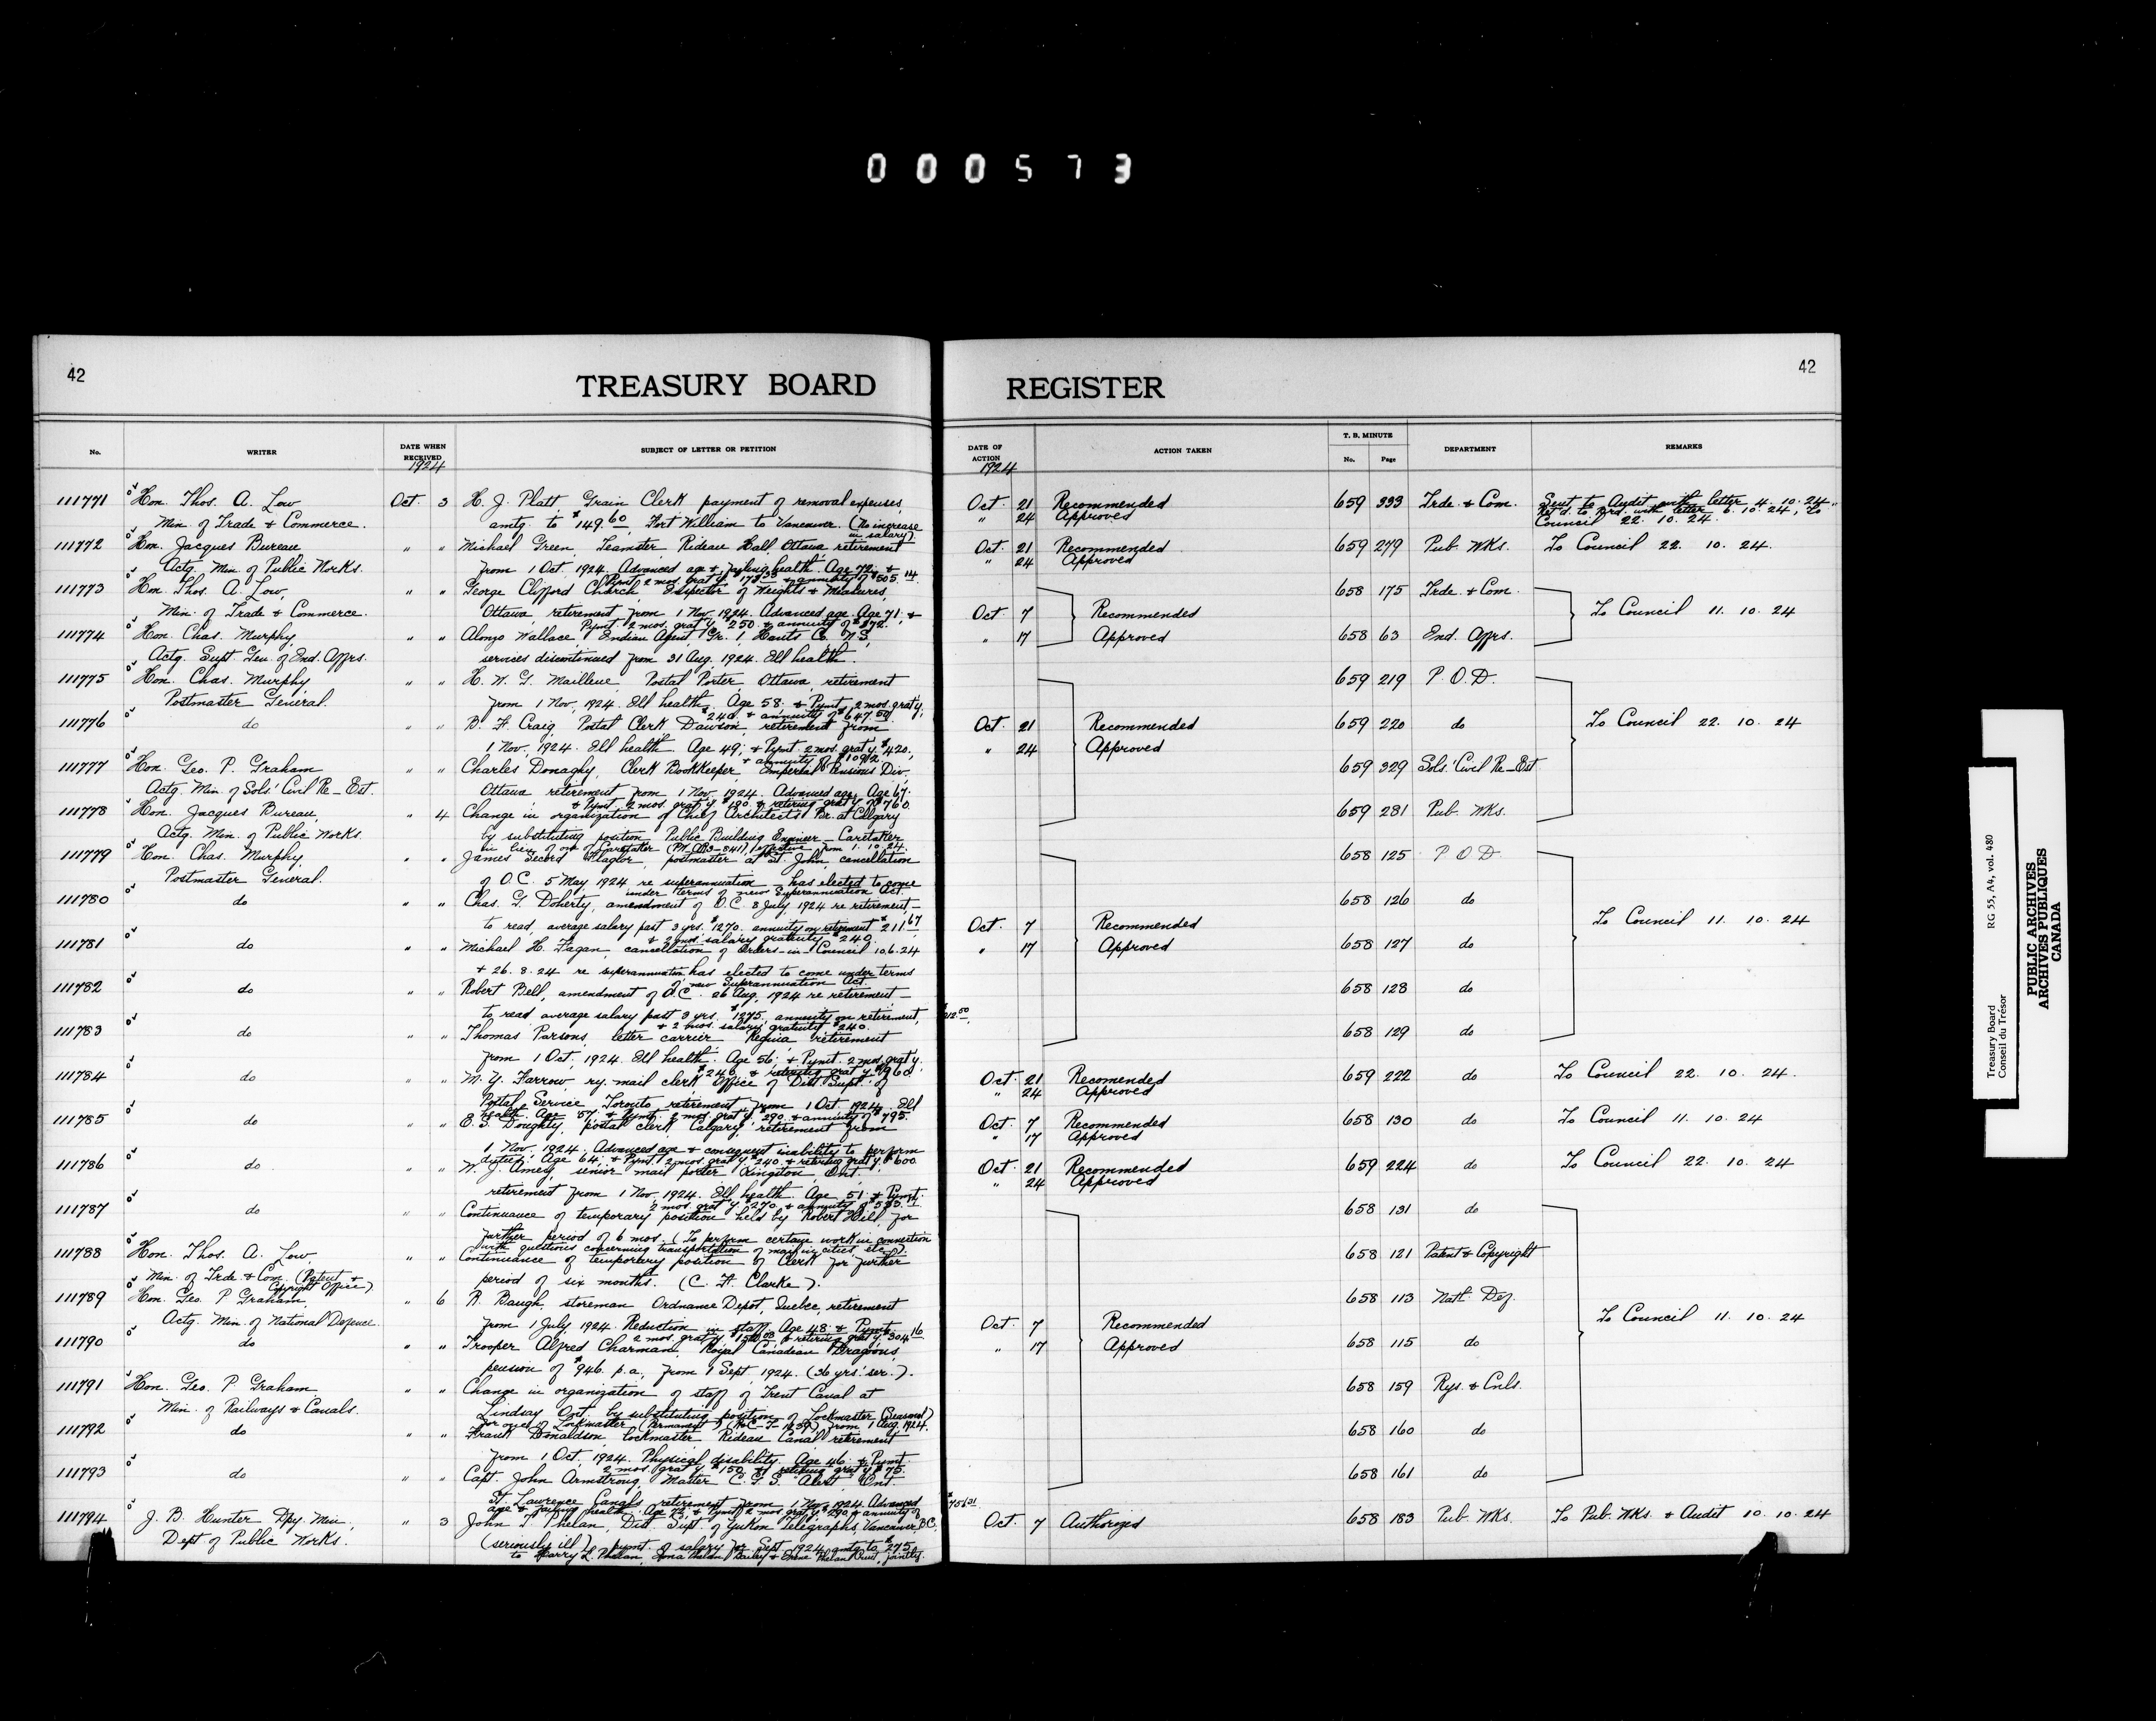 000573
42
TREASURY BOARD
No.
WRITER
DATE WHEN RECEIVED
1924
SUBJECT OF LETTER OR PETITION
111771 Hon. Thos. A. Low Oct. 3 H. J. Platt, Grain Clerk payment of removal expenses,
Min. of Trade & Commerce. amtg. to $149.60 Fort William to Vancouver. (No increase
in salary).
111772 Hon. Jacques Bureau " " Michael Green, Teamster, Rideau Hall, Ottawa retirement
Actg. Min. of Public Works. from 1 Oct. 1924. Advanced age & failing health. Age 72; &
Pymt. 2 mos. grat'y $173.33 & annuity of $505.14.
111773 Hon. Thos. A. Low, " " George Clifford Church, Inspector of Weights & Measures,
Min. of Trade & Commerce. Ottawa, retirement from 1 Nov. 1924. Advanced age. Age 71; &
Pymt. 2 mos. grat'y $250. & annuity of $872.
111774 Hon. Chas. Murphy, " " Alonzo Wallace, Indian Agent Gr. 1 Hants Co. N.S.,
Actg. Supt. Gen. of Ind. Affrs. services discontinued from 31 Aug. 1924. Ill health.
111775 Hon. Chas. Murphy, " " H. W. G. Mailleue, Postal Porter, Ottawa, retirement
Postmaster General. from 1 Nov. 1924. Ill health. Age 58; & Pymt. 2 mos. grat'y,
$240. & annuity of $647.50.
111776 do " " B. F. Craig, Postal Clerk Dawson, retirement from
1 Nov. 1924. Ill health. Age 49; & Pymt. 2 mos. grat'y. $420,
& annuity of $1092.
111777 Hon. Geo. P. Graham " " Charles Donaghy, Clerk Bookkeeper, Imperial Pensions Div.
Actg. Min. of Sols' Civil Re-Est. Ottawa retirement from 1 Nov. 1924. Advanced age. Age 67;
& Pymt. 2 mos. grat'y $190. & retiring grat'y $760.
111778 Hon. Jacques Bureau, " 4 Change in organization of Chief Architects Br. at Calgary
Actg. Min. of Public Works. by substituting position Public Building Engineer - Caretaker
in lieu of one of Caretaker effective from 1.10.24.
111779 Hon. Chas. Murphy, " " James Secord Flaglor, postmaster at St. John, cancellation
Postmaster General. of O.C. 5 May 1924 re superannuation - has elected to come
under terms of new Superannuation Act.
111780 do " " Chas. G. Doherty, amendment of O.C. 8 July, 1924 re retirement -
to read, average salary past 3 yrs. $1270, annuity on retirement $211.67
& 2 mos. salary gratuity $240.
111781 do " " Michael H. Fagan, cancellation of Orders-in-Council 10.6.24
& 26.8.24 re superannuation has elected to come under terms
of new Superannuation Act.
111782 do " " Robert Bell, amendment of O.C. 26 Aug, 1924 re retirement -
to read average salary past 3 yrs. $1275, annuity on retirement, $212.50,
& 2 mos. salary gratuity $240.
111783 do " " Thomas Parsons, letter carrier Regina retirement
from 1 Oct, 1924. Ill health. Age 56; & Pymt. 2 mos. grat'y.
$240 & retiring grat'y $960
111784 do " " M. Y. Farrow, ry. mail clerk Office of Dist. Supt. of
Postal Service Toronto retirement from 1 Oct. 1924. Ill
health. Age 57; & Pymt. 2 mos. grat'y. 290, & annuity of $795.
111785 do " " E. S. Doughty, postal clerk Calgary, retirement from
1 Nov. 1924. Advanced age & consequent inability to perform
duties. Age 64; & Pymt. 2 mos. grat'y $240. & retiring grat'y $600
111786 do " " W. J. Amey, senior mail porter Kingston, Ont.
retirement from 1 Nov. 1924. Ill health. Age 51; & Pymt.
2 mos. grat'y $270, & annuity of
111787 do " " Continuance of temporary position held by Robert Hill for
further period of 6 mos. (To perform certain work in connection
with questions concerning transportation of mail in cities, etc.).
111788 Hon. Thos. A. Low " " Continuance of temporary position of Clerk for further
Min. of Trde & Com. (Patent & Copyright Office) period of six months. (C. F. Clarke).
111789 Hon. Geo. P. Graham, " 6 R. Baugh, storeman Ordnance Depot, Quebec, retirement
Actg. Min. of National Defence. from 1 July, 1924. Reduction in staff. Age 48; & Pymt.
2 mos. grat'y & retiring grat'y $304.16
111790 do " " Trooper Alfred Charman, Royal Canadian Dragoons,
pension of $946. p.a. from 1 Sept. 1924. (36 yrs' ser.).
111791 Hon. Geo. P. Graham " " Change in organization of staff of Trent Canal at
Min. of Railways & Canals. Lindsay Ont. by substituting position of Lockmaster (Seasonal)
for one of Lockmaster (Permanent) from 1 Aug. 1924.
111792 do " " Frank Donaldson, lockmaster Rideau Canal retirement
from 1 Oct, 1924. Physical disability. Age 46; & Pymt.
2 mos. grat'y $150 & retiring grat'y $75.
111793 do " " Capt. John Armstrong, Master C.G.S. Alert, Ont.
St. Lawrence Canals retirement from 1 Nov. 1924. Advanced
age & failing health. Age 73; & Pymt. 2 mos. grat'y $290 & annuity of $756.31
111794 J. B. Hunter Dpy. Min., " 3 John T. Phelan, Dist. Supt. of Yukon Telegraphs, Vancouver, B.C.
Dept of Public Works. (seriously ill) pymt. of salary for Sept. 1924 amtg. to $275.
to Harry L. Phelan, jointly.
42
REGISTER
DATE OF ACTION
1924
ACTION TAKEN
T. B. MINUTE
No. Page
DEPARTMENT
REMARKS
Oct. 21 Recommended 659 333 Trde. & Com. Sent to Audit with letter 4.10.24.
" 24 Approved Ret'd. to Brd. with letter 6.10.24, To
Council 22.10.24.
Oct. 21 Recommended 659 279 Pub. Wks. To Council 22. 10. 24.
" 24 Approved
658 175 Trde. & Com.
Oct. 7 Recommended To Council 11. 10. 24
" 17 Approved 658 63 Ind. Affrs.
659 219 P.O.D.
Oct. 21 Recommended 659 220 do To Council 22. 10. 24
" 24 Approved
659 329 Sols.' Civil Re-Est
659 281 Pub. Wks.
658 125 P.O.D.
658 126 do
Oct. 7 Recommended To Council 11. 10. 24
" 17 Approved 658 127 do
658 128 do
658 129 do
Oct. 21 Recomended 659 222 do To Council 22. 10. 24.
" 24 Approved
Oct. 7 Recommended 658 130 do To Council 11. 10. 24
" 17 Approved
Oct. 21 Recommended 659 224 do To Council 22. 10. 24
" 24 Approved
658 131 do
658 121 Patent & Copyright
658 113 Natl. Def.
Oct. 7 Recommended To Council 11. 10. 24
" 17 Approved 658 115 do
658 159 Rys. & Cnls.
658 160 do
658 161 do
Oct. 7 Authorized 658 183 Pub. Wks. To Pub. Wks. & Audit 10. 10. 24
Treasury Board
Conseil du Trésor
RG 55, A4, vol. 480
PUBLIC ARCHIVES
ARCHIVES PUBLIQUES
CANADA